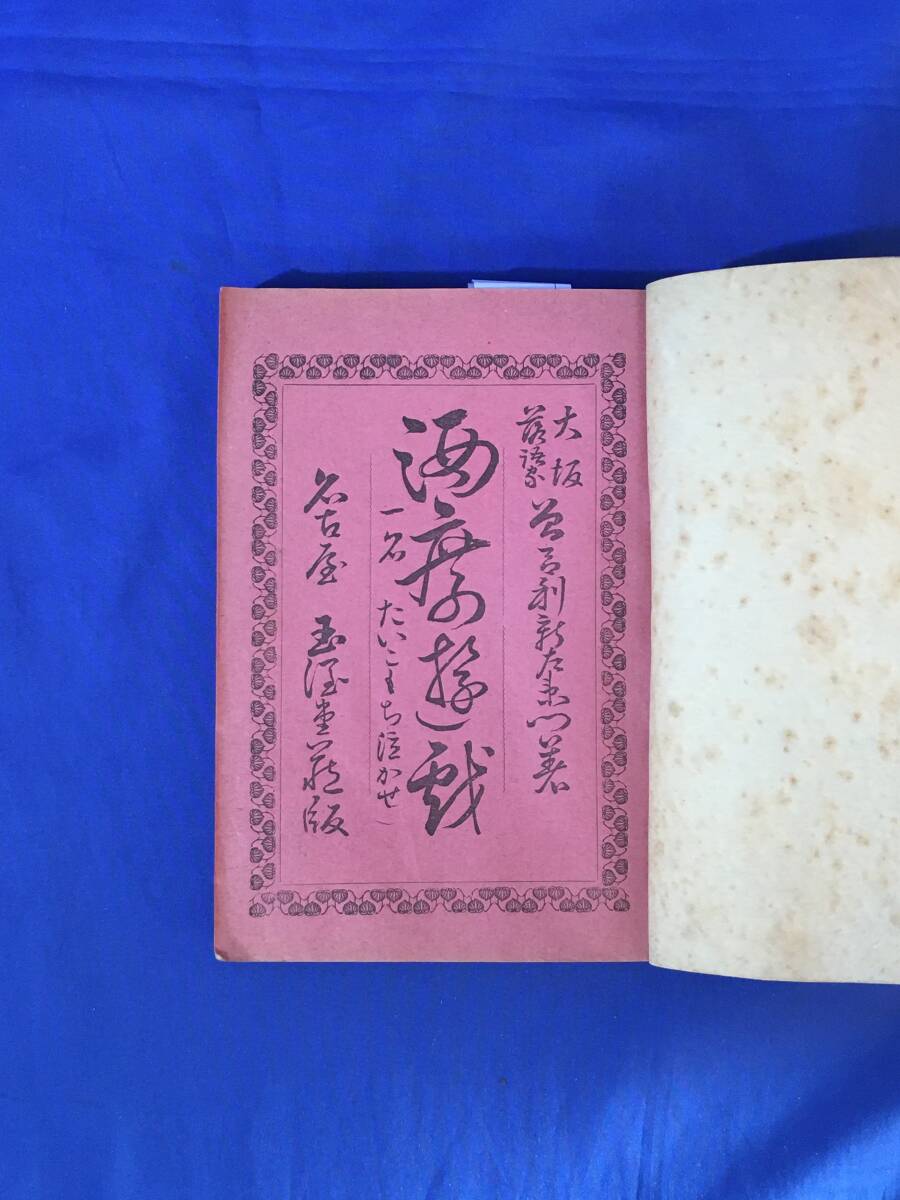 大坂
落語家
曽呂利新左衛門著
酒席の遊戯
一名 たいこもち泣かせ
名古屋 玉堂蔵版